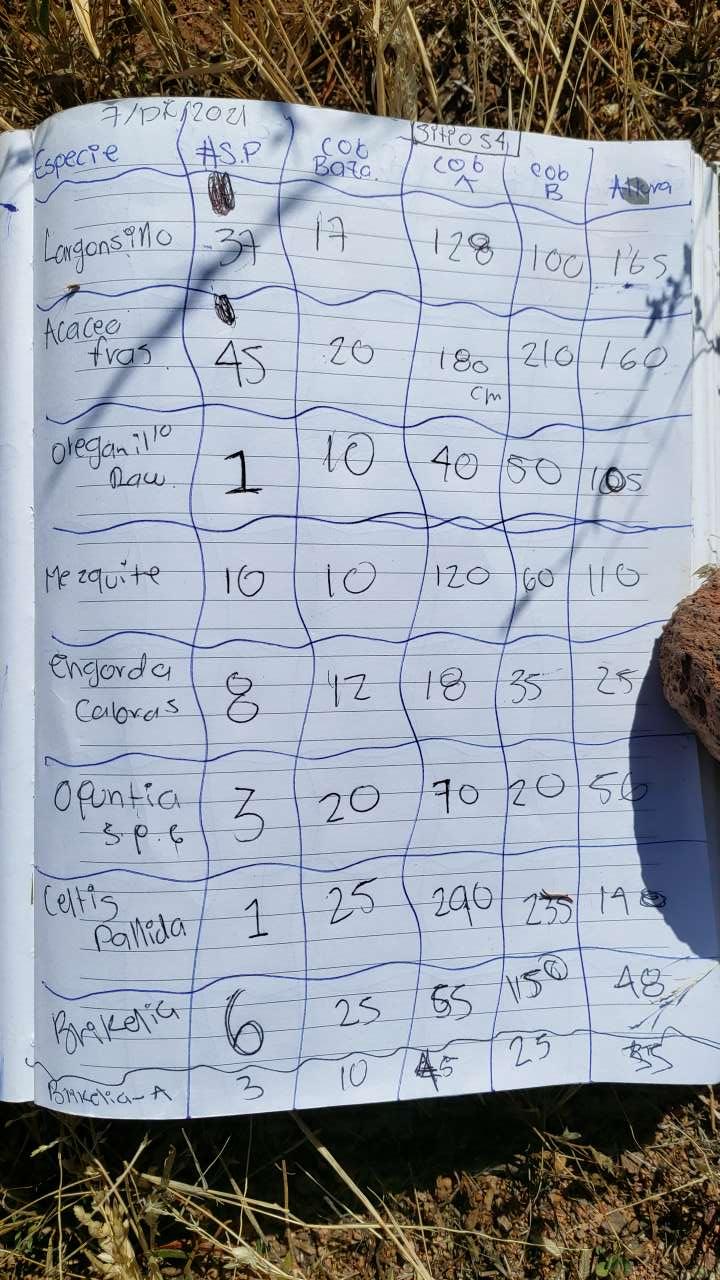 7/Dic/2021
Sitio S4
Especie #S.P Cob Basa. Cob A Cob B Altura
Largonsillo 37 17 128 100 165
Acacea
fras. 45 20 180 cm 210 160
Oreganillo
Raw. 1 10 40 50 105
Mezquite 10 10 120 60 110
Engorda
Cabras 8 12 18 35 25
Opuntia
S.P. 6 3 20 70 20 56
Celtis
Pallida 1 25 290 235
Brikelia 6 25 55 48
Brikelia-A 3 10 45 25 35